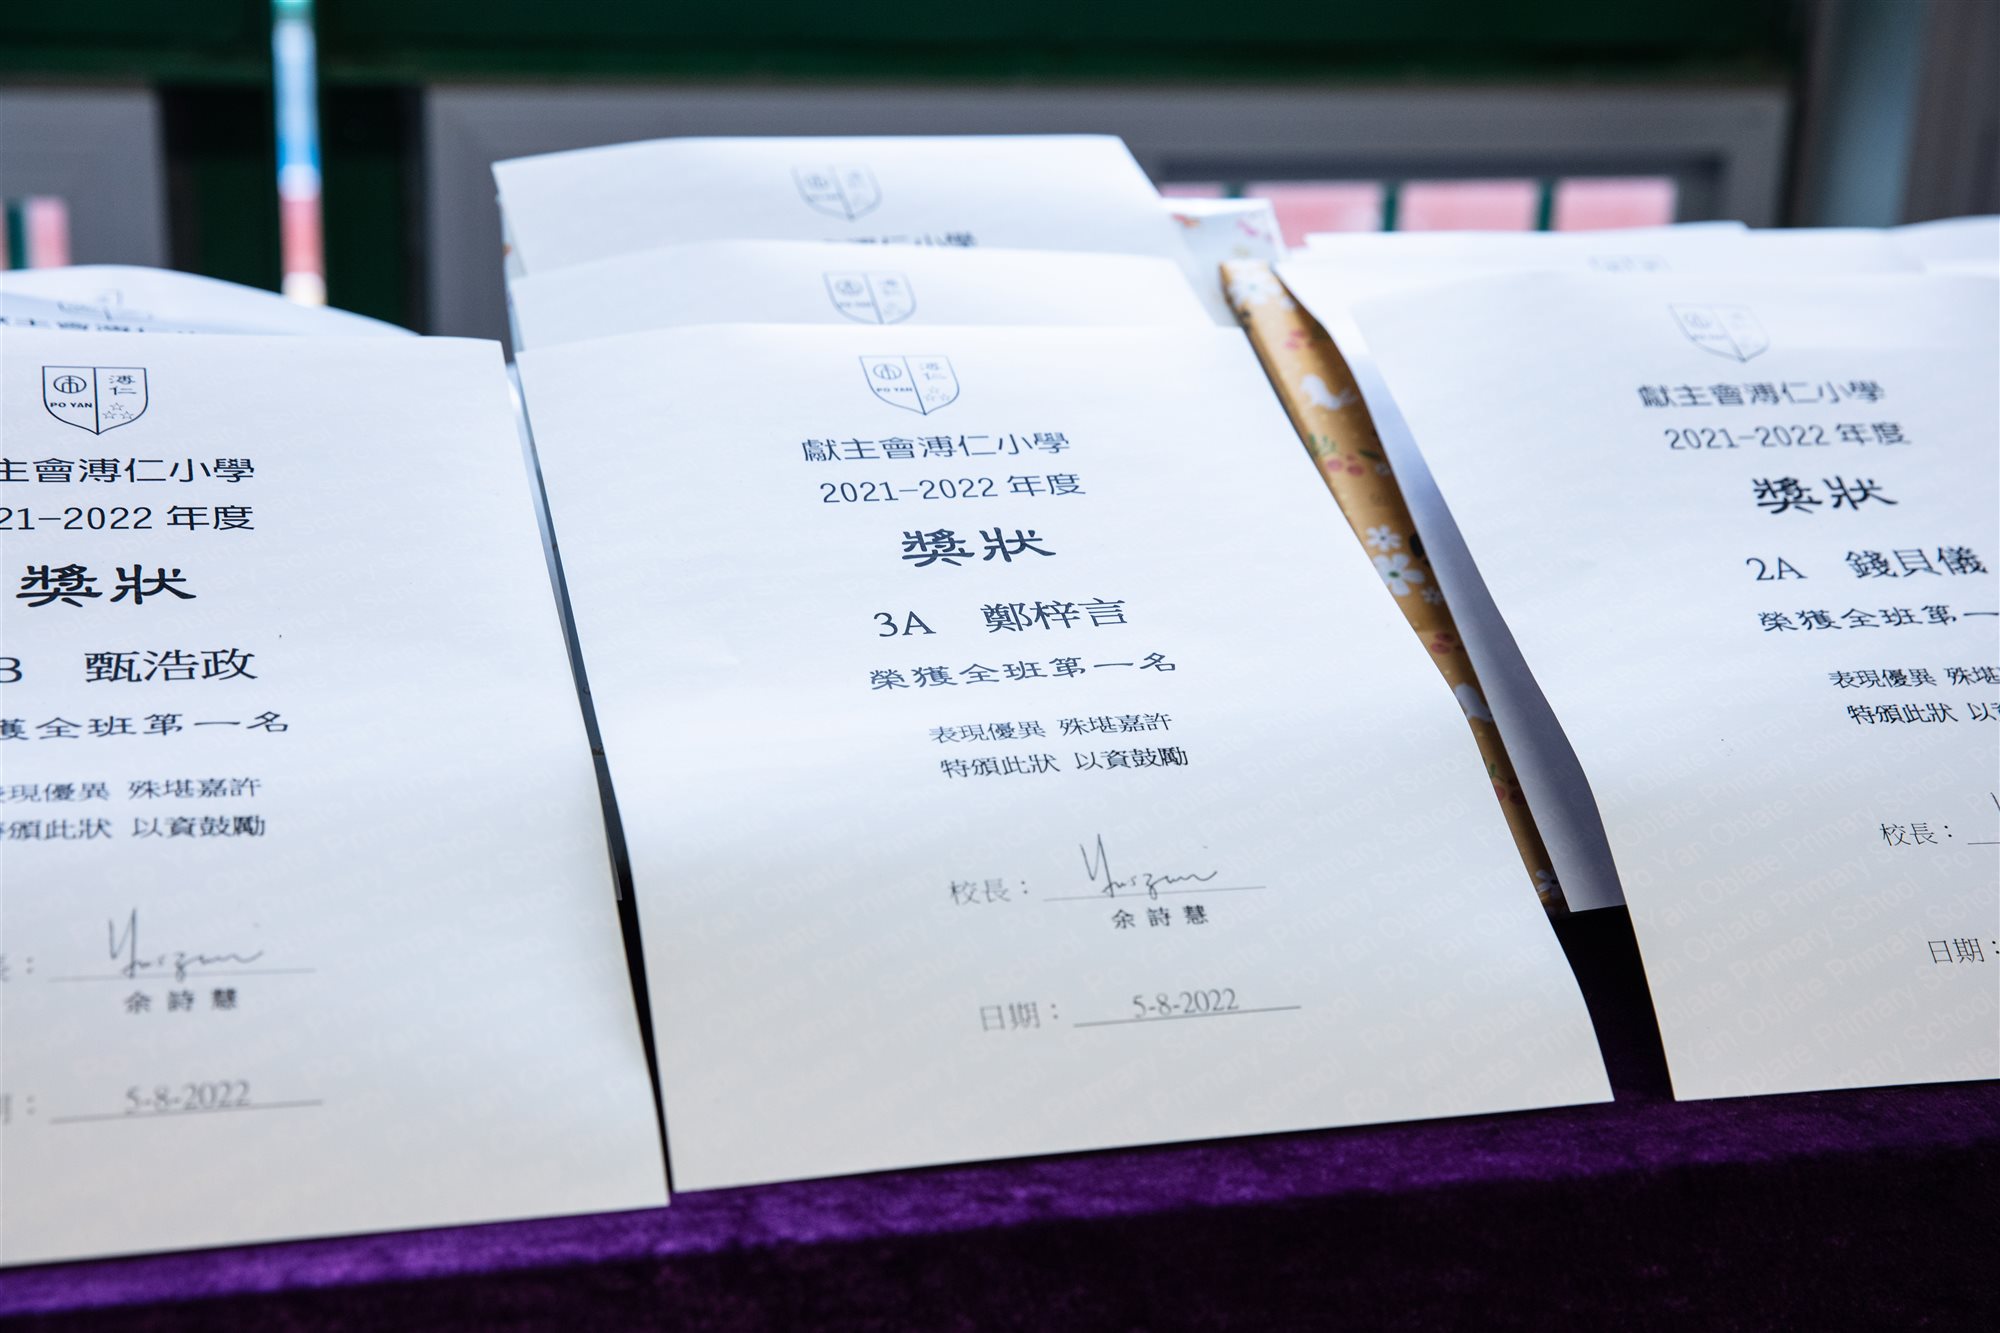 小學
主會溥仁小學
PO YAN 溥仁
主會溥仁小學
21-2022 年度
獎狀
B 甄浩政
獲全班第一名
表現優異 殊堪嘉許
特頒此狀 以資鼓勵
余詩慧
5-8-2022
PO YAN 溥仁
獻主會溥仁小學
2021-2022 年度
獎狀
3A 鄭梓言
榮獲全班第一名
表現優異 殊堪嘉許
特頒此狀 以資鼓勵
校長：
余詩慧
日期： 5-8-2022
獻主會溥仁小學
2021-2022 年度
獎狀
2A 錢貝儀
榮獲全班第一
表現優異 殊堪
特頒此狀 以
校長：
日期：
Po Yan Oblate Primary School